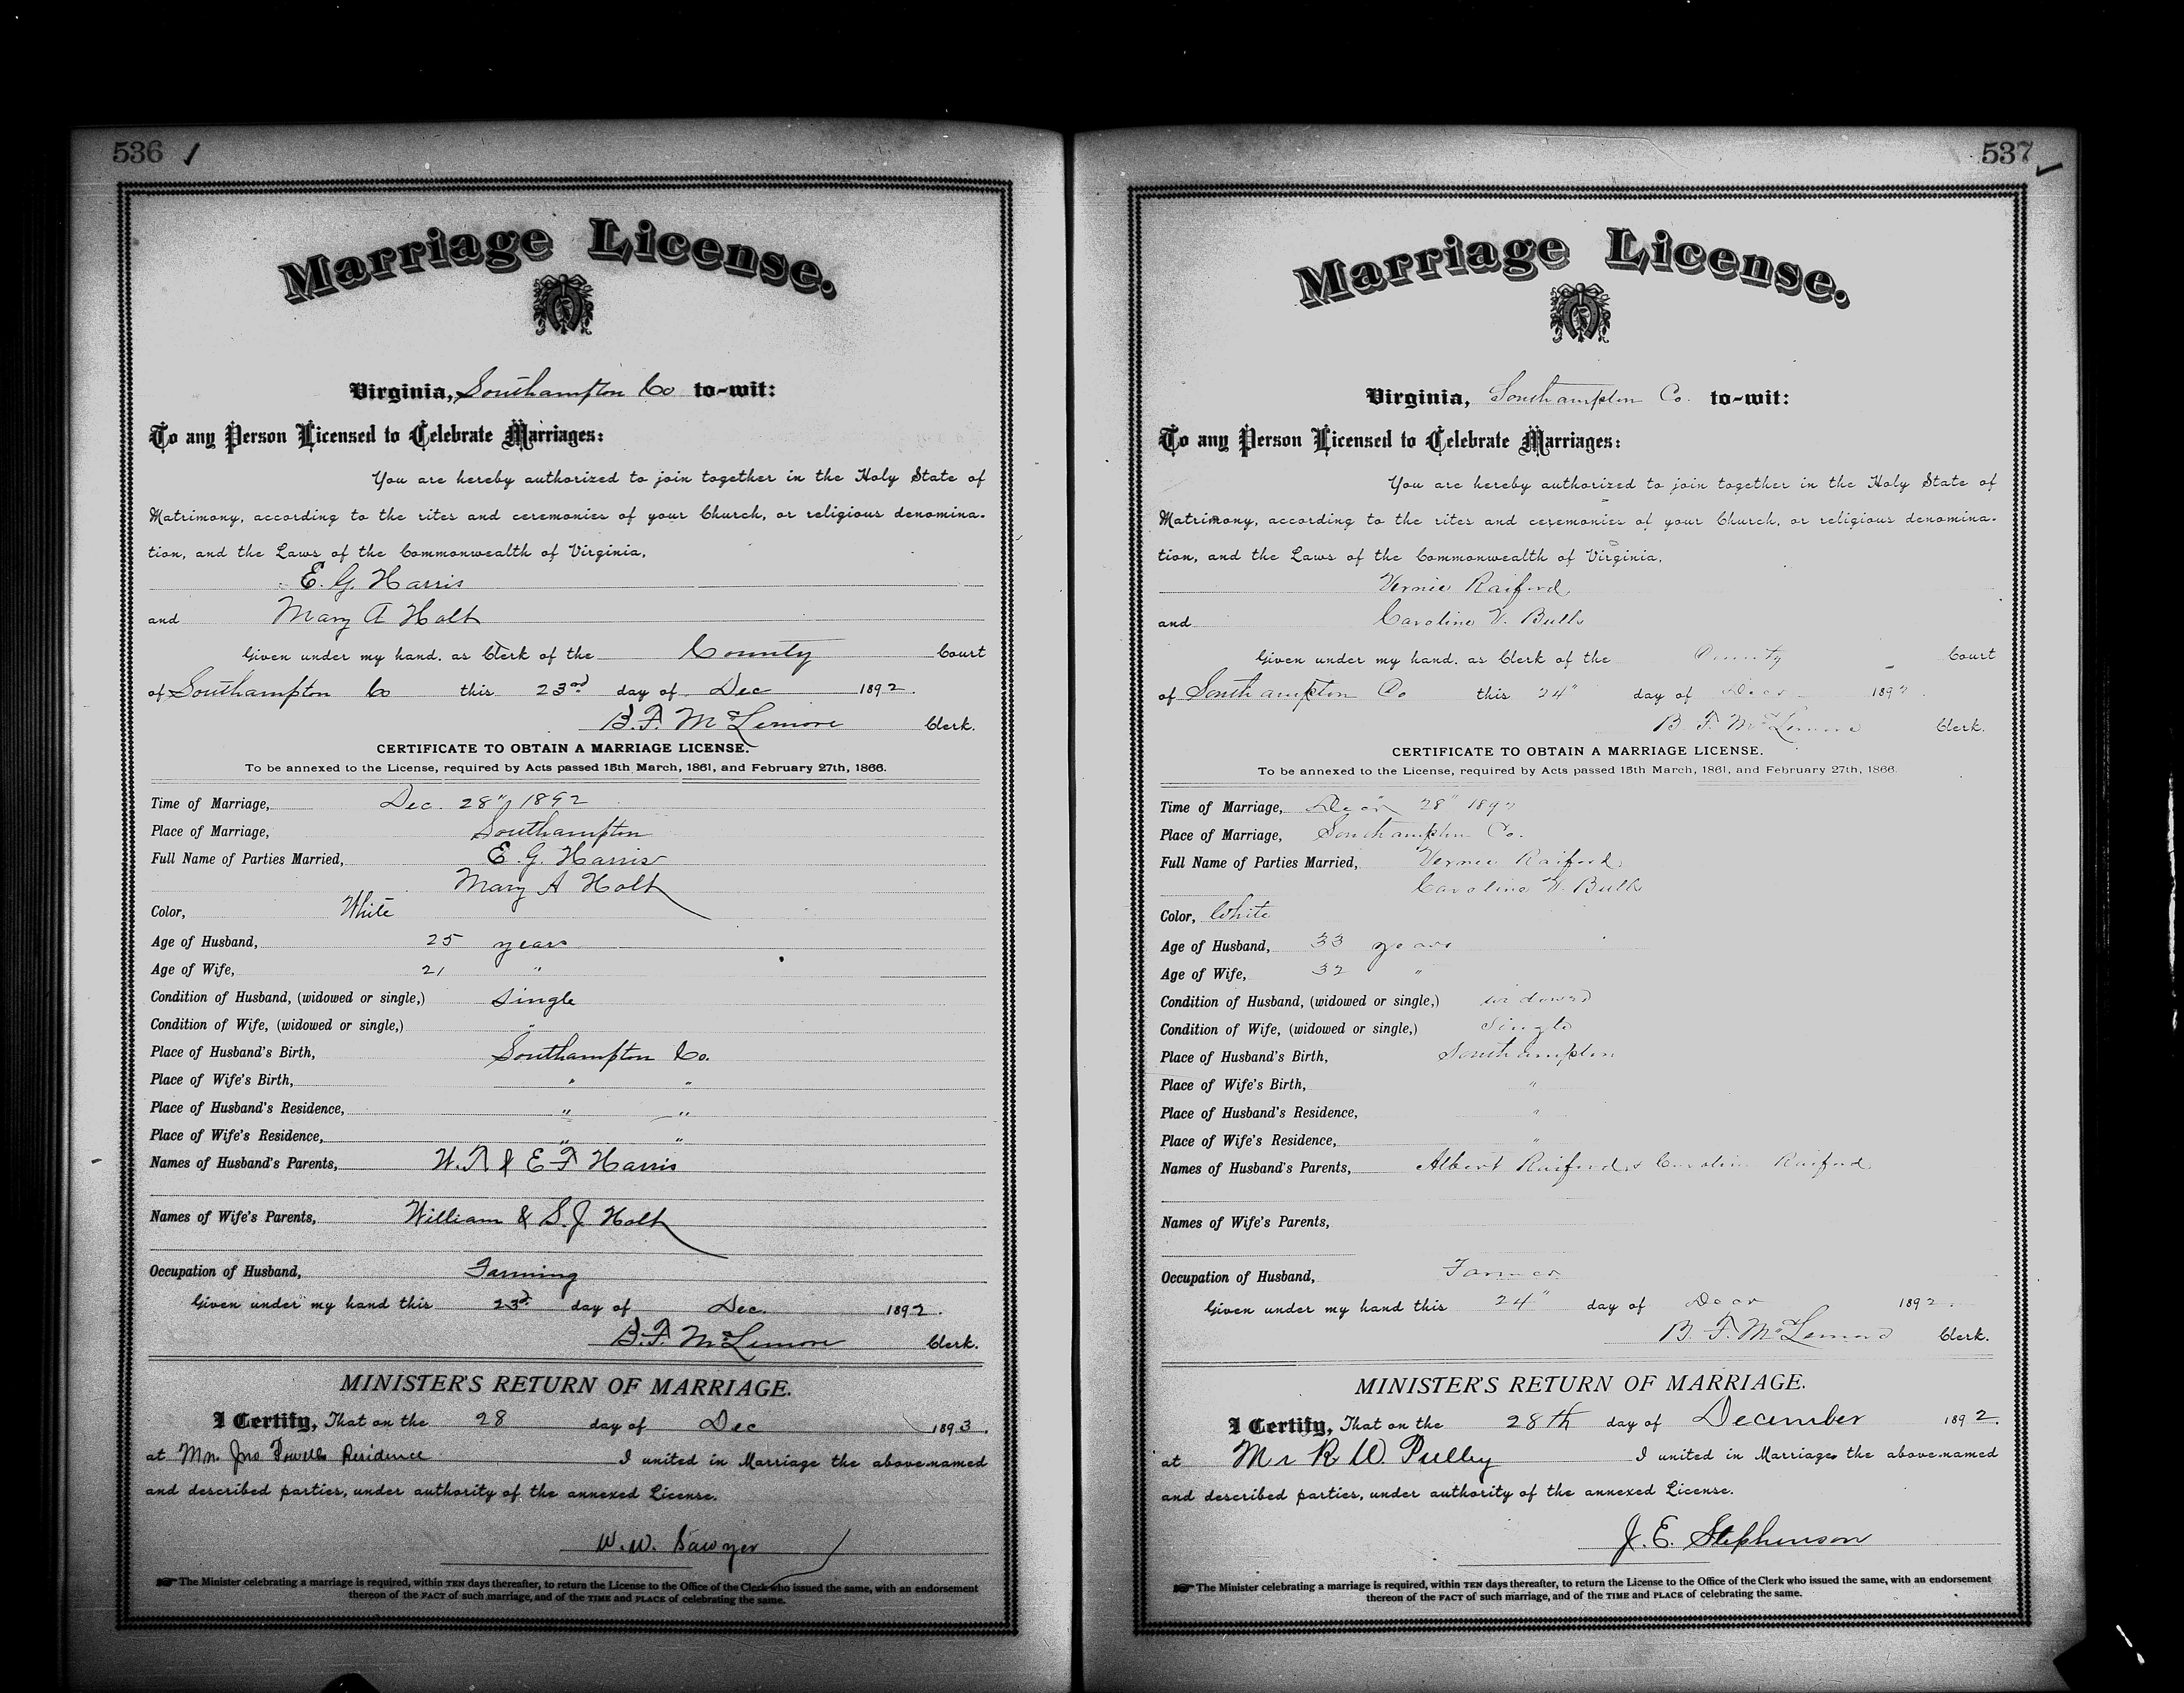 536
Marriage License.
Virginia, Southampton Co to-wit:
To any Person Licensed to Celebrate Marriages:
You are hereby authorized to join together in the Holy State of
Matrimony, according to the rites and ceremonies of your Church, or religious denomina-
tion, and the Laws of the Commonwealth of Virginia,
E. G. Harris
and Mary A Holt
Given under my hand, as Clerk of the County Court
of Southampton Co this 23rd day of Dec 1892.
B. F. McLemore Clerk.
CERTIFICATE TO OBTAIN A MARRIAGE LICENSE.
To be annexed to the License, required by Acts passed 15th March, 1861, and February 27th, 1866.
Time of Marriage, Dec. 28" 1892
Place of Marriage, Southampton
Full Name of Parties Married, E. G. Harris
Mary A Holt
Color, White
Age of Husband, 25 years
Age of Wife, 21 "
Condition of Husband, (widowed or single,) Single
Condition of Wife, (widowed or single,) "
Place of Husband's Birth, Southampton Co.
Place of Wife's Birth, " "
Place of Husband's Residence, " "
Place of Wife's Residence, " "
Names of Husband's Parents, W. T. & E F Harris
Names of Wife's Parents, William & S. J Holt
Occupation of Husband, Farming
Given under my hand this 23d day of Dec. 1892.
B. F. McLemore Clerk.
MINISTER'S RETURN OF MARRIAGE.
I Certify, That on the 28 day of Dec 1893.
at Mr. Jno Residence I united in Marriage the above-named
and described parties, under authority of the annexed License.
W. W. Sawyer
The Minister celebrating a marriage is required, within TEN days thereafter, to return the License to the Office of the Clerk who issued the same, with an endorsement
thereof of the FACT of such marriage, and of the TIME and PLACE of celebrating the same.
537
Marriage License.
Virginia, Southampton Co. to-wit:
To any Person Licensed to Celebrate Marriages:
You are hereby authorized to join together in the Holy State of
Matrimony, according to the rites and ceremonies of your Church, or religious denomina-
tion, and the Laws of the Commonwealth of Virginia,
Vernie Raiford
and Caroline V. Bulls
Given under my hand, as Clerk of the County Court
of Southampton Co this 24" day of Decr 1892.
B. F. McLemore Clerk.
CERTIFICATE TO OBTAIN A MARRIAGE LICENSE.
To be annexed to the License, required by Acts passed 15th March, 1861, and February 27th, 1866.
Time of Marriage, Decr 28" 1892
Place of Marriage, Southampton Co.
Full Name of Parties Married, Vernie Raiford
Caroline V. Bulls
Color, White
Age of Husband, 33 years
Age of Wife, 32 "
Condition of Husband, (widowed or single,) widowed
Condition of Wife, (widowed or single,) Single
Place of Husband's Birth, Southampton
Place of Wife's Birth, "
Place of Husband's Residence, "
Place of Wife's Residence, "
Names of Husband's Parents, Albert Raiford & Caroline Raiford
Names of Wife's Parents,
Occupation of Husband, Farmer
Given under my hand this 24" day of Decr 1892.
B. F. McLemore Clerk.
MINISTER'S RETURN OF MARRIAGE.
I Certify, That on the 28th day of December 1892.
at Mr R W. Pulley I united in Marriage the above-named
and described parties, under authority of the annexed License.
J. E. Stephenson
The Minister celebrating a marriage is required, within TEN days thereafter, to return the License to the Office of the Clerk who issued the same, with an endorsement
thereof of the FACT of such marriage, and of the TIME and PLACE of celebrating the same.